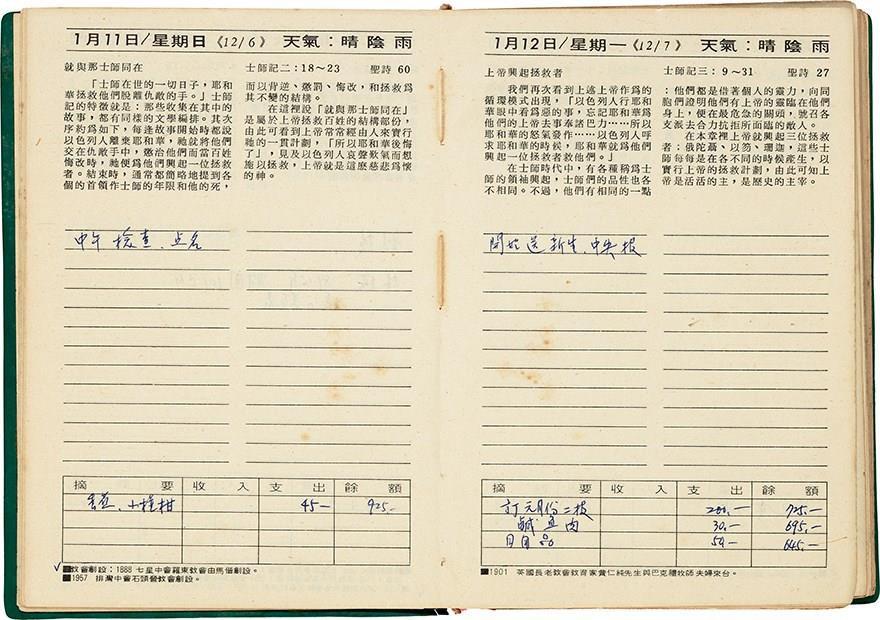 1月11日/星期日《12/6》 天氣：晴陰雨
就與那士師同在 士師記二：18～23 聖詩 60
「士師在世的一切日子，耶和
華拯救他們脫離仇敵的手。」士師
記的特徵就是：那些收集在其中的
故事，都有同樣的文學編排。其次
序約為如下，每逢故事開始時都說
以色列人離棄耶和華，祂就將他們
交在仇敵手中，懲治他們而當百姓
悔改時，祂便為他們興起一位拯救
者。結束時，通常都簡略地提到各
個的首領作士師的年限和他的死，
而以背逆、懲罰、悔改，和拯救為
其不變的結構。
在這裡說「就與那士師同在」
是屬於上帝拯救百姓的結構部份，
由此可看到上帝常常經由人來實行
祂的一貫計劃，「所以耶和華後悔
了」，見及以色列人哀聲歎氣而想
施以拯救，上帝就是這麼慈悲為懷
的神。
中午 檢查、点名
摘要 收入 支出 餘額
香蕉、小椪柑 45— 925.—
■教會創設：1888 七星中會羅東教會由馬偕創設。
■1957 排灣中會石頭營教會創設。
1月12日/星期一《12/7》 天氣：晴陰雨
上帝興起拯救者 士師記三：9～31 聖詩 27
我們再次看到上述上帝作為的
循環模式出現，「以色列人行耶和
華眼中看為惡的事，忘記耶和華為
他們的上帝去事奉諸巴力……所以
耶和華的怒氣發作……以色列人呼
求耶和華的時候，耶和華就為他們
興起一位拯救者救他們。」
在士師時代中，有各種稱為士
師的領袖興起，士師們的品性也各
不相同。不過，他們有相同的一點
：他們都是借著個人的靈力，向同
胞們證明他有上帝的靈臨在他們
身上，便在最危急的關頭，號召各
支派去合力抗拒所面臨的敵人。
在本章裡上帝就興起三位拯救
者：俄陀聶、以笏、珊迦，這些士
師每每是在各不同的時候產生，以
實行上帝的拯救計劃，由此可知上
帝是活活的主，是歷史的主宰。
開始送新生、中央报
摘要 收入 支出 餘額
訂元月份二報 200.— 725.—
鹹魚肉 30.— 695.—
日用品 50.— 645.—
■1901 英國長老教會教育家費仁純先生與巴克禮牧師夫婦來台。